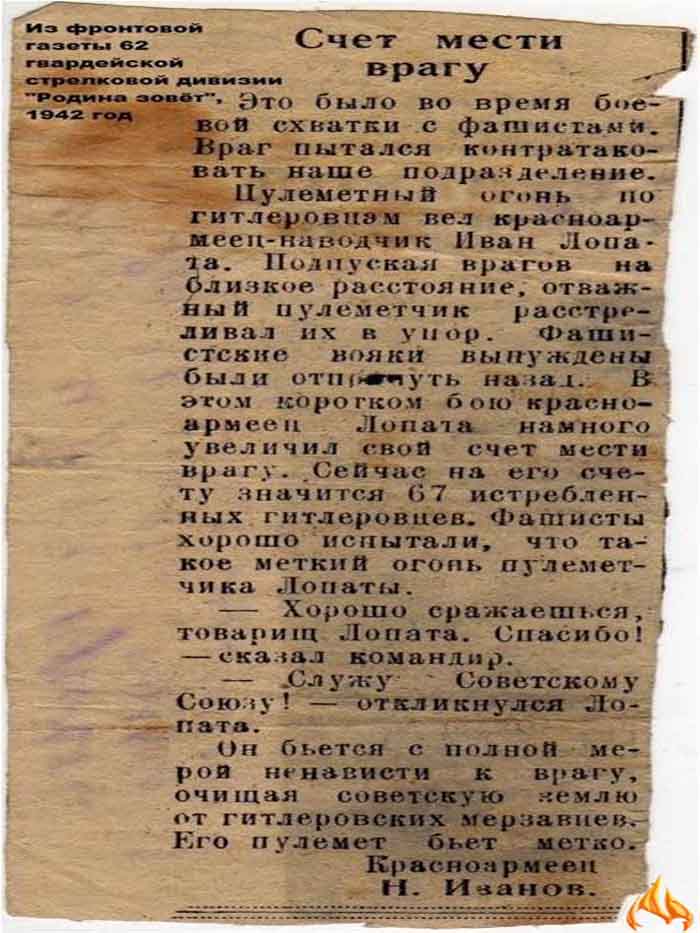 Из фронтовой
газеты 62
гвардейской
стрелковой дивизии
"Родина зовёт",
1942 год
Счет мести
врагу
Это было во время бое-
вой схватки с фашистами.
Враг пытался контратако-
вать наше подразделение.
Пулеметный огонь по
гитлеровцам вел красноар-
меец-наводчик Иван Лопа-
та. Подпуская врагов на
близкое расстояние, отваж-
ный пулеметчик расстре-
ливал их в упор. Фаши-
стские вояки вынуждены
были назад. В
этом коротком бою красно-
армеец Лопата намного
увеличил свой счет мести
врагу. Сейчас на его сче-
ту значится 67 истреблен-
ных гитлеровцев. Фашисты
хорошо испытали, что та-
кое меткий огонь пулемет-
чика Лопаты.
— Хорошо сражаешься,
товарищ Лопата. Спасибо!
— сказал командир.
— Служу Советскому
Союзу! — откликнулся Ло-
пата.
Он бьется с полной ме-
рой ненависти к врагу,
очищая советскую землю
от гитлеровских мерзавцев.
Его пулемет бьет метко.
Красноармеец
Н. Иванов.